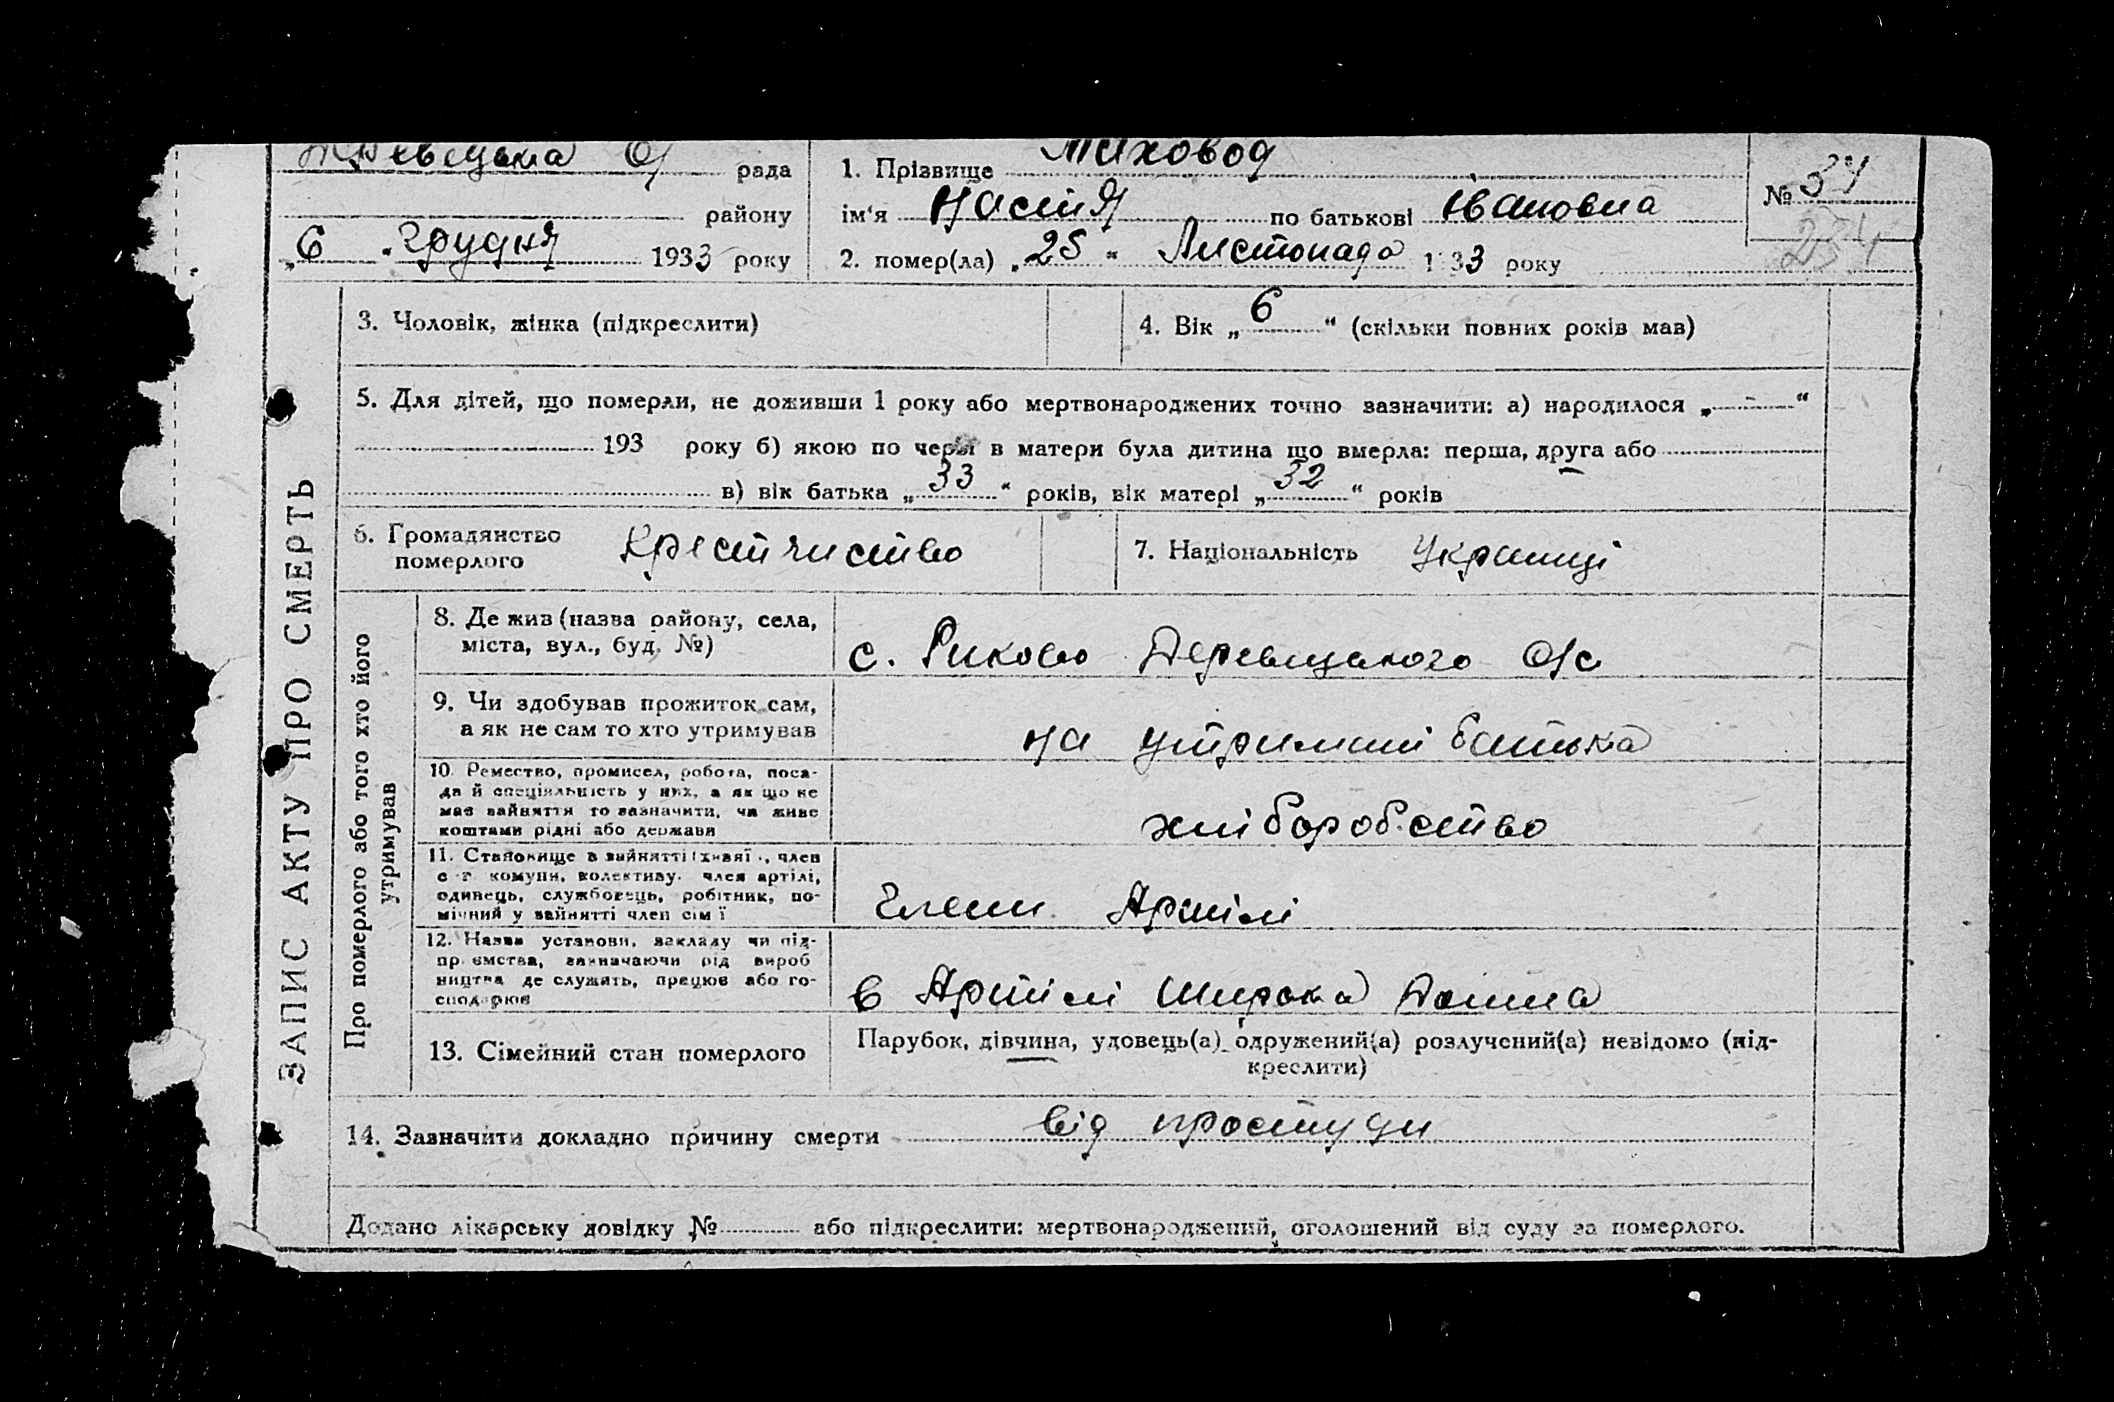 рада
1. Прізвище Маховод
№ 34
району
ім‘я Настя по батькові Івановна
234
„6 „ грудня 1933 року
2. помер(ла) „25“ Листопада 1933 року
3. Чоловік, жінка (підкреслити)
4. Вік „6“ (скільки повних років мав)
5. Для дітей, що померли, не доживши 1 року або мертвонароджених точно зазначити: а) народилося „ “
193 року б) якою по черзі в матери була дитина що вмерла: перша, друга або
в) вік батька „33“ років, вік матері „32“ років
6. Громадянство
померлого
7. Національність Украинці
ЗАПИС АКТУ ПРО СМЕРТЬ
Про померлого або того хто його
утримував
8. Де жив (назва району, села,
міста, вул., буд. №)
с. Риково Деревицького с/с
9. Чи здобував прожиток сам,
а як не сам то хто утримував
на утримані батька
10. Ремество, промисел, робота, поса-
да й спеціяльність у них, а як що не
має зайняття то зазначити, чи живе
коштами рідні або держави
хліборобство
11. Становище в зайнятті , член
с.-г. комуни, колективу, член артілі,
одинець, службовець, робітник, по-
мічний у зайнятті член сім‘ї
Член Артілі
12. Назва установи, закладу чи під-
приємства, зазначаючи рід вироб
ництва де служить, працює або го-
сподарює
в Артілі Широка Долина
13. Сімейний стан померлого
Парубок, дівчина, удовець(а), одружений(а) розлучений(а) невідомо (під-
креслити)
14. Зазначити докладно причину смерти від простуди
Додано лікарську довідку № або підкреслити: мертвонароджений, оголошений від суду за померлого.